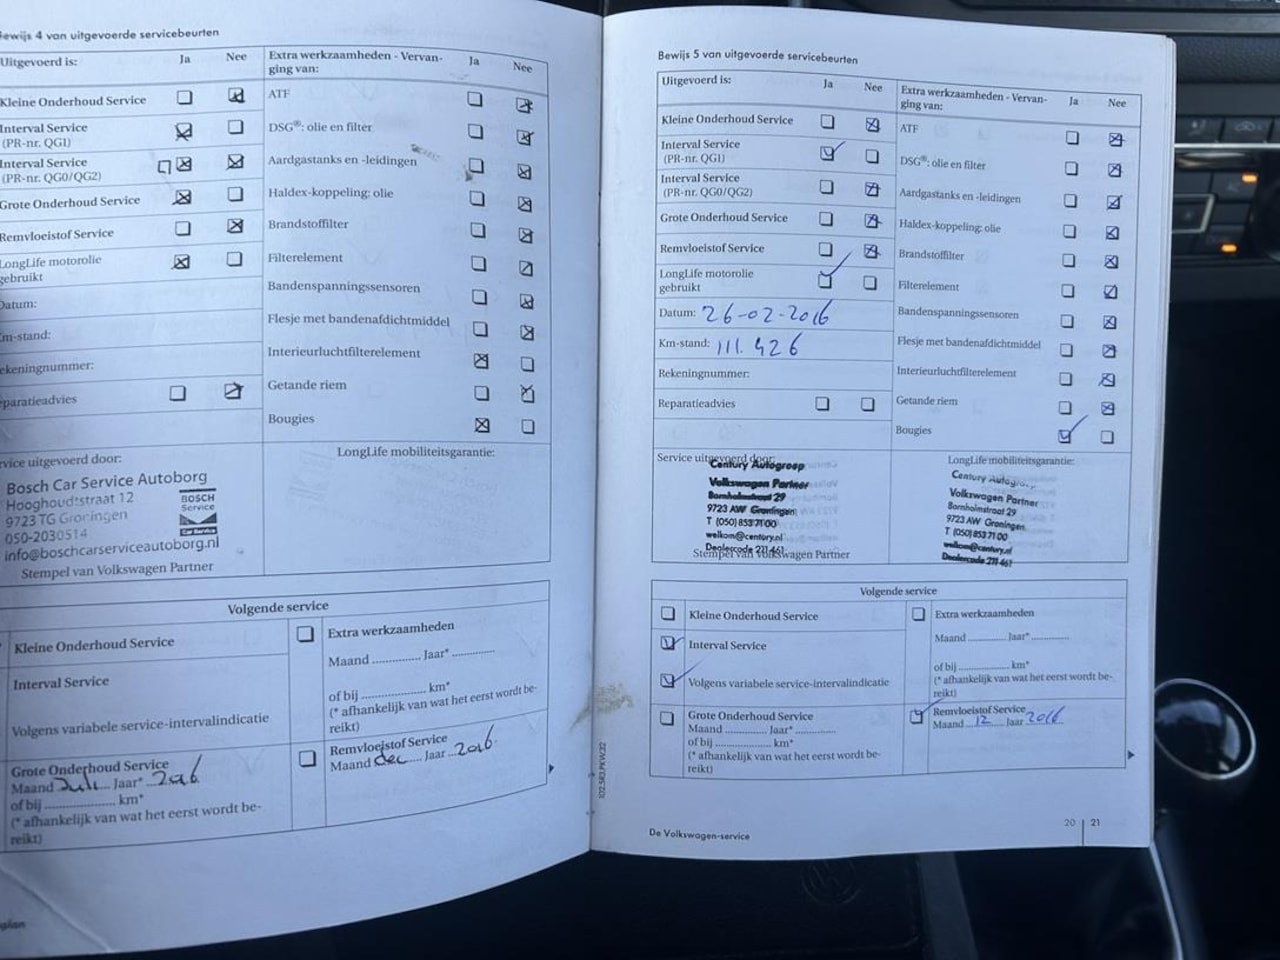 Bewijs 4 van uitgevoerde servicebeurten
Uitgevoerd is: Ja Nee
Kleine Onderhoud Service
Interval Service
(PR-nr. QG1)
Interval Service
(PR-nr. QG0/QG2)
Grote Onderhoud Service
Remvloeistof Service
LongLife motorolie
gebruikt
Datum:
Km-stand:
Rekeningnummer:
Reparatieadvies
Extra werkzaamheden - Vervan-
ging van: Ja Nee
ATF
DSG®: olie en filter
Aardgastanks en -leidingen
Haldex-koppeling: olie
Brandstoffilter
Filterelement
Bandenspanningssensoren
Flesje met bandenafdichtmiddel
Interieurluchtfilterelement
Getande riem
Bougies
Service uitgevoerd door:
Bosch Car Service Autoborg
Hooghoudtstraat 12
9723 TG Groningen
050-2030514
info@boschcarserviceautoborg.nl
BOSCH
Service
Car Service
Stempel van Volkswagen Partner
LongLife mobiliteitsgarantie:
Volgende service
Kleine Onderhoud Service
Interval Service
Volgens variabele service-intervalindicatie
Grote Onderhoud Service
Maand Juli Jaar* 2016
of bij .................... km*
(* afhankelijk van wat het eerst wordt be-
reikt)
Extra werkzaamheden
Maand .............. Jaar* ..............
of bij .................... km*
(* afhankelijk van wat het eerst wordt be-
reikt)
Remvloeistof Service
Maand dec Jaar 2016
Bewijs 5 van uitgevoerde servicebeurten
Uitgevoerd is: Ja Nee
Kleine Onderhoud Service
Interval Service
(PR-nr. QG1)
Interval Service
(PR-nr. QG0/QG2)
Grote Onderhoud Service
Remvloeistof Service
LongLife motorolie
gebruikt
Datum: 26-02-2016
Km-stand: 111.426
Rekeningnummer:
Reparatieadvies
Extra werkzaamheden - Vervan-
ging van: Ja Nee
ATF
DSG®: olie en filter
Aardgastanks en -leidingen
Haldex-koppeling: olie
Brandstoffilter
Filterelement
Bandenspanningssensoren
Flesje met bandenafdichtmiddel
Interieurluchtfilterelement
Getande riem
Bougies
Service uitgevoerd door:
Century Autogroep
Volkswagen Partner
Bornholmstraat 29
9723 AW Groningen
T (050) 853 71 00
welkom@century.nl
Dealercode 211 461
Stempel van Volkswagen Partner
LongLife mobiliteitsgarantie:
Century Autogroep
Volkswagen Partner
Bornholmstraat 29
9723 AW Groningen
T (050) 853 71 00
welkom@century.nl
Dealercode 211 461
Volgende service
Kleine Onderhoud Service
Interval Service
Volgens variabele service-intervalindicatie
Grote Onderhoud Service
Maand .............. Jaar* ..............
of bij .................... km*
(* afhankelijk van wat het eerst wordt be-
reikt)
Extra werkzaamheden
Maand .............. Jaar* ..............
of bij .................... km*
(* afhankelijk van wat het eerst wordt be-
reikt)
Remvloeistof Service
Maand 12 Jaar 2016
De Volkswagen-service
20 21